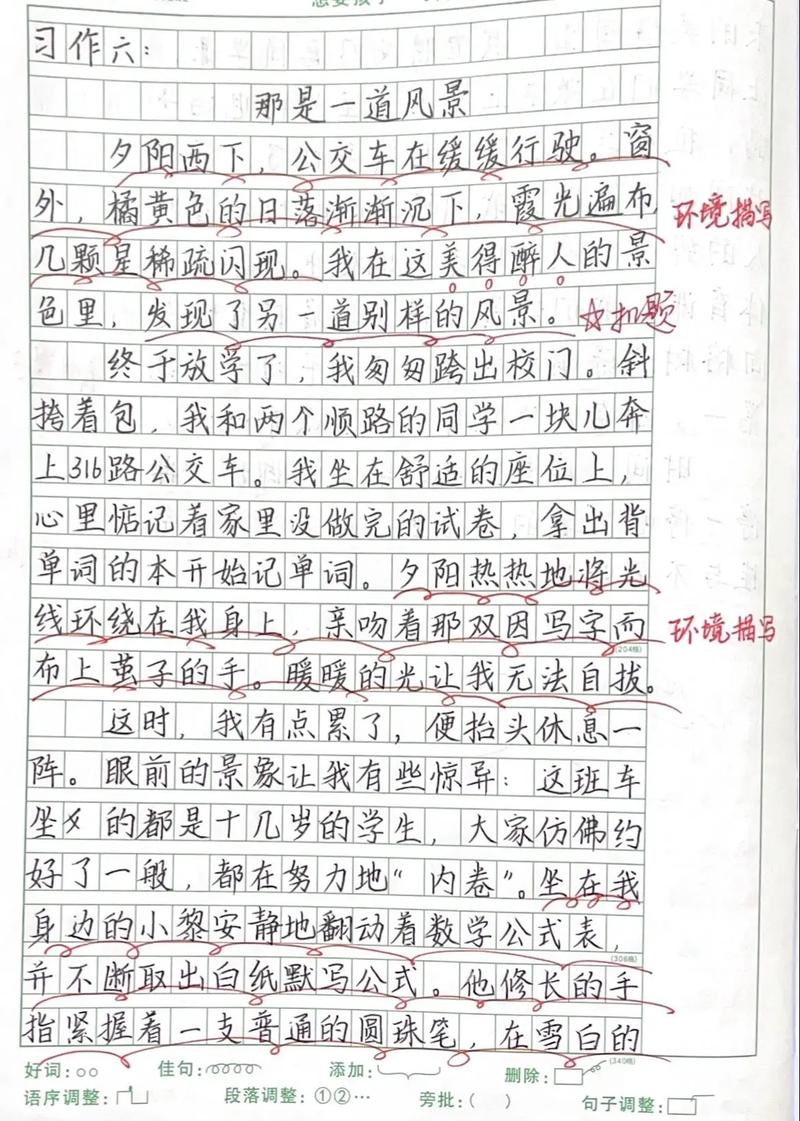 习作六：
那是一道风景
夕阳西下，公交车在缓缓行驶。窗
外，橘黄色的日落渐渐沉下，霞光遍布，
环境描写
几颗星稀疏闪现。我在这美得醉人的景
色里，发现了另一道别样的风景。
☆扣题
终于放学了，我匆匆跨出校门。斜
挎着包，我和两个顺路的同学一块儿奔
上316路公交车。我坐在舒适的座位上，
心里惦记着家里没做完的试卷，拿出背
单词的本开始记单词。夕阳热热地将光
线环绕在我身上，亲吻着那双因写字而
环境描写
(204格)
布上茧子的手。暖暖的光让我无法自拔。
这时，我有点累了，便抬头休息一
阵。眼前的景象让我有些惊异：这班车
坐的都是十几岁的学生，大家仿佛约
好了一般，都在努力地“内卷”。坐在我
身边的小黎安静地翻动着数学公式表，
(306格)
并不断取出白纸默写公式。他修长的手
指紧握着一支普通的圆珠笔，在雪白的
(340格)
好词：○○ 佳句： 添加： 删除：
语序调整： 段落调整：①②… 旁批：( ) 句子调整：